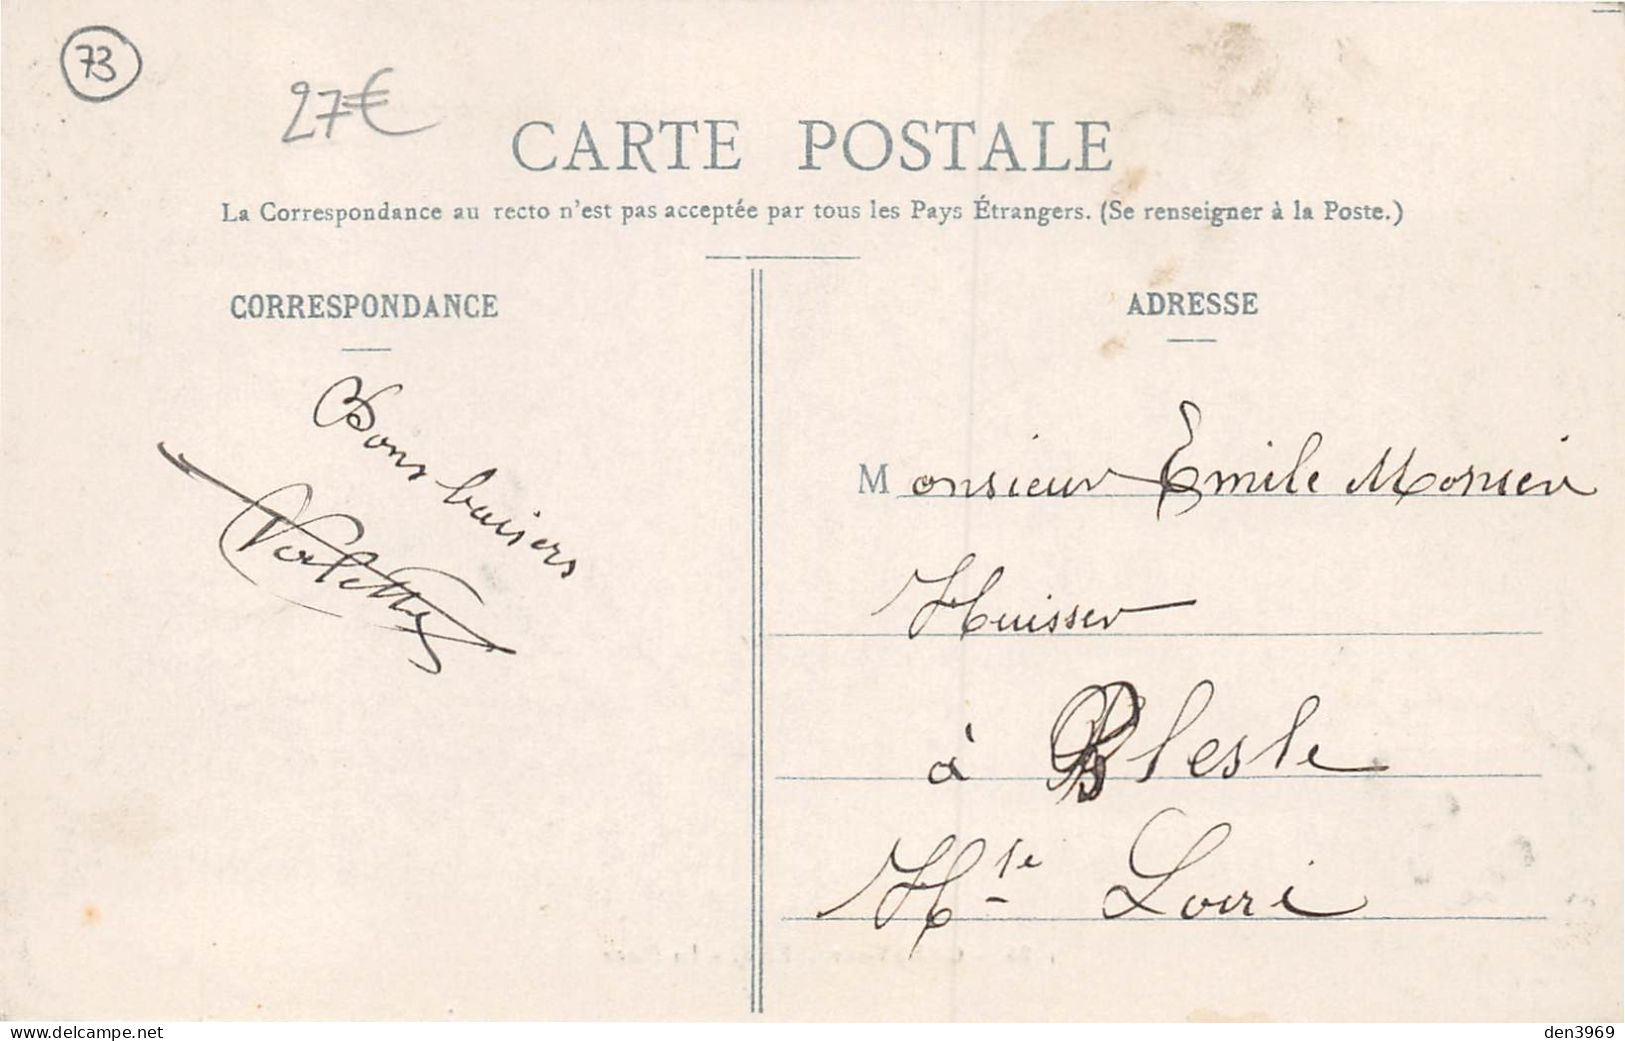 73
27€
CARTE POSTALE
La Correspondance au recto n'est pas acceptée par tous les Pays Étrangers. (Se renseigner à la Poste.)
CORRESPONDANCE
Bons baisers
ADRESSE
Monsieur Emile
Huissier
à Blesle
Hte Loire
https://www.delcampe.net
den3969